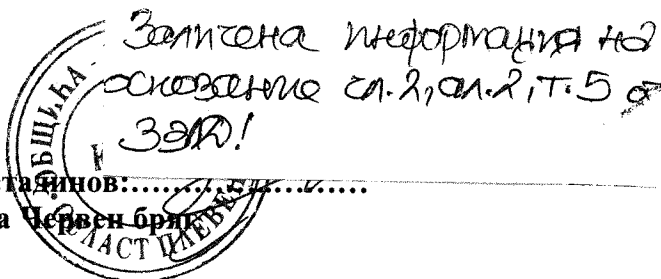 Заличена информация на
основание чл.2, ал.2, т.5 от
ЗЗЛД!
ОБЩИНА
тадинов:......................
а Червен бряг
ОБЛАСТ ПЛЕВЕН